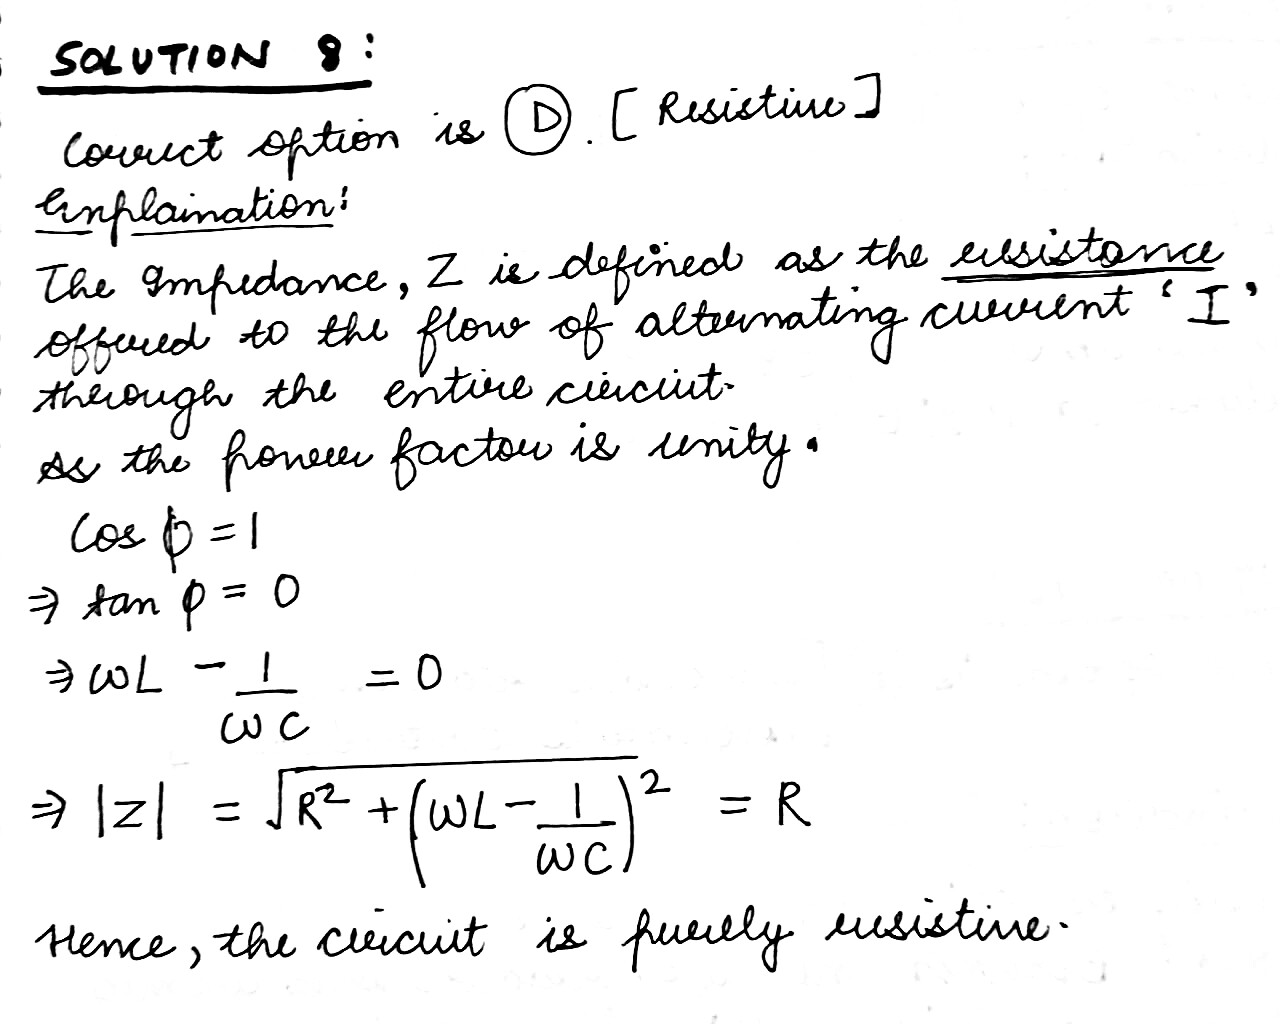 SOLUTION 8:
Correct option is D. [Resistive]
Explaination:
The Impedance, Z is defined as the resistance
offered to the flow of alternating current 'I'
through the entire circuit.
As the power factor is unity.
Cos φ = 1
⇒ tan φ = 0
⇒ ωL - 1/ωC = 0
⇒ |Z| = √R² + (ωL - 1/ωC)² = R
Hence, the circuit is purely resistive.